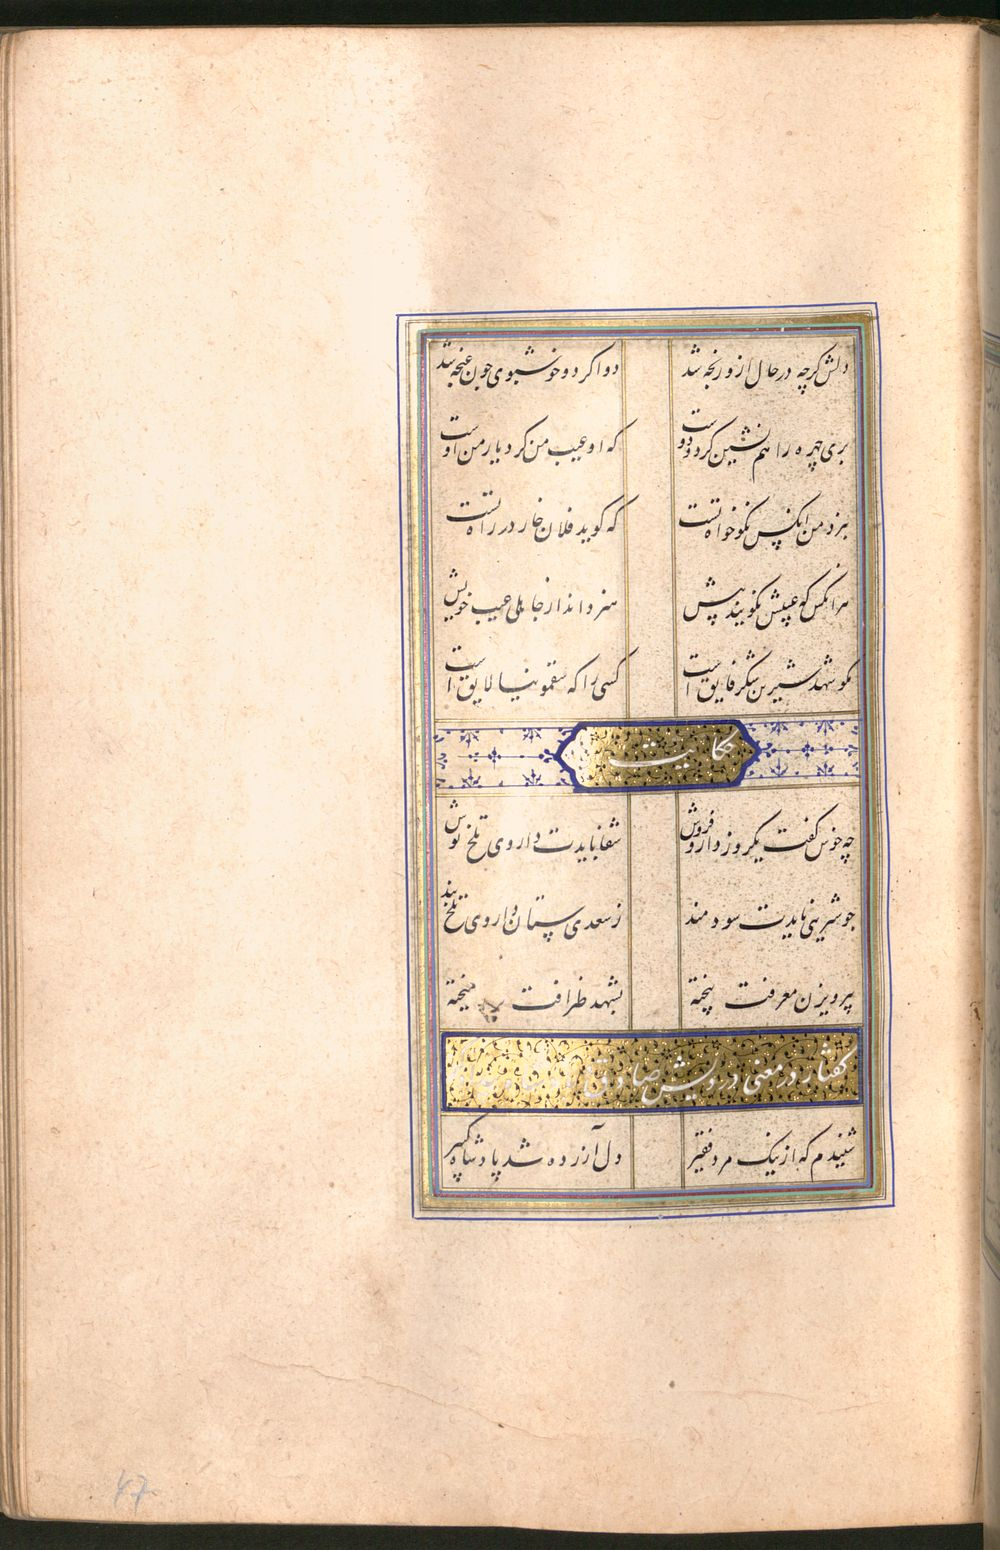 دلش کرچه در حال ازو رنجه شد
دوا کرد و خوشبوی چون غنچه شد
بری چهره را هم نشین کرد و دوست
که او عیب من کرد یار من اوست
بنزد من انکس نکو خواه تست
که کوید فلان خار در راه تست
هر انکس که عیبش نکویند پیش
هنر داند از جاهلی عیب خویش
مکو شهد شیرین شکر فایق است
کسی را که سقمونیا لایق است
حکایت
چه خوش کفت یکروز دارو فروش
شفا بایدت داروی تلخ نوش
جو شربتی بایدت سودمند
ز سعدی ستان داروی تلخ بند
پرویزن معرفت پیخته
بشهد ظرافت میخته
کفتار در معنی درویش صادق
شنیدم که از نیک مرد فقیر
دل آزرده شد پادشاه کبیر
47